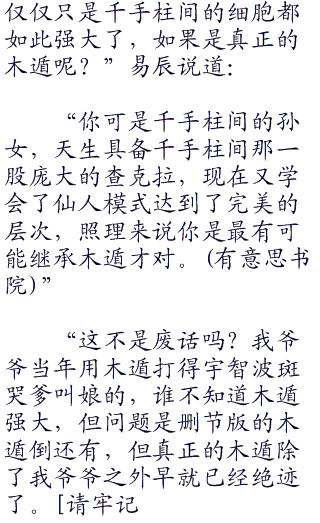 仅仅只是千手柱间的细胞都
如此强大了，如果是真正的
木遁呢？”易辰说道：
“你可是千手柱间的孙
女，天生具备千手柱间那一
股庞大的查克拉，现在又学
会了仙人模式达到了完美的
层次，照理来说你是最有可
能继承木遁才对。(有意思书
院)”
“这不是废话吗？我爷
爷当年用木遁打得宇智波斑
哭爹叫娘的，谁不知道木遁
强大，但问题是删节版的木
遁倒还有，但真正的木遁除
了我爷爷之外早就已经绝迹
了。[请牢记